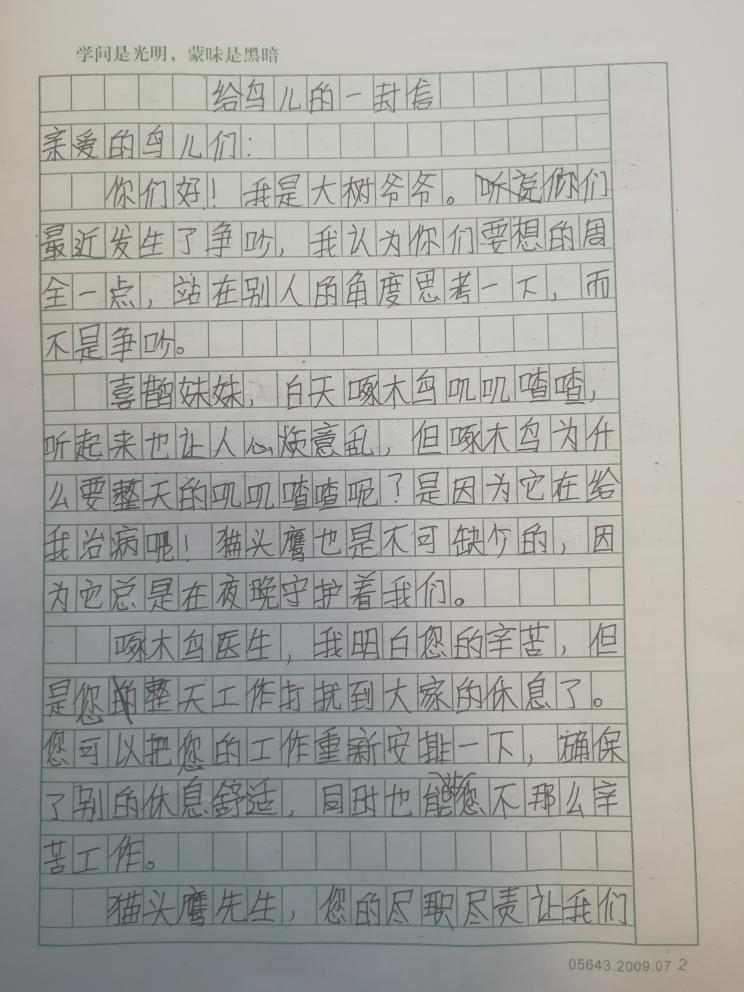 学问是光明，蒙昧是黑暗
给鸟儿的一封信
亲爱的鸟儿们：
你们好！我是大树爷爷。听说你们
最近发生了争吵，我认为你们要想的周
全一点，站在别人的角度思考一下，而
不是争吵。
喜鹊妹妹，白天啄木鸟叽叽喳喳，
听起来也让人心烦意乱，但啄木鸟为什
么要整天的叽叽喳喳呢？是因为它在给
我治病呢！猫头鹰也是不可缺少的，因
为它总是在夜晚守护着我们。
啄木鸟医生，我明白您的辛苦，但
是您整天工作打扰到大家的休息了。
您可以把您的工作重新安排一下，确保
了别的休息舒适，同时也能您不那么辛
苦工作。
猫头鹰先生，您的尽职尽责让我们
05643.2009.07 2